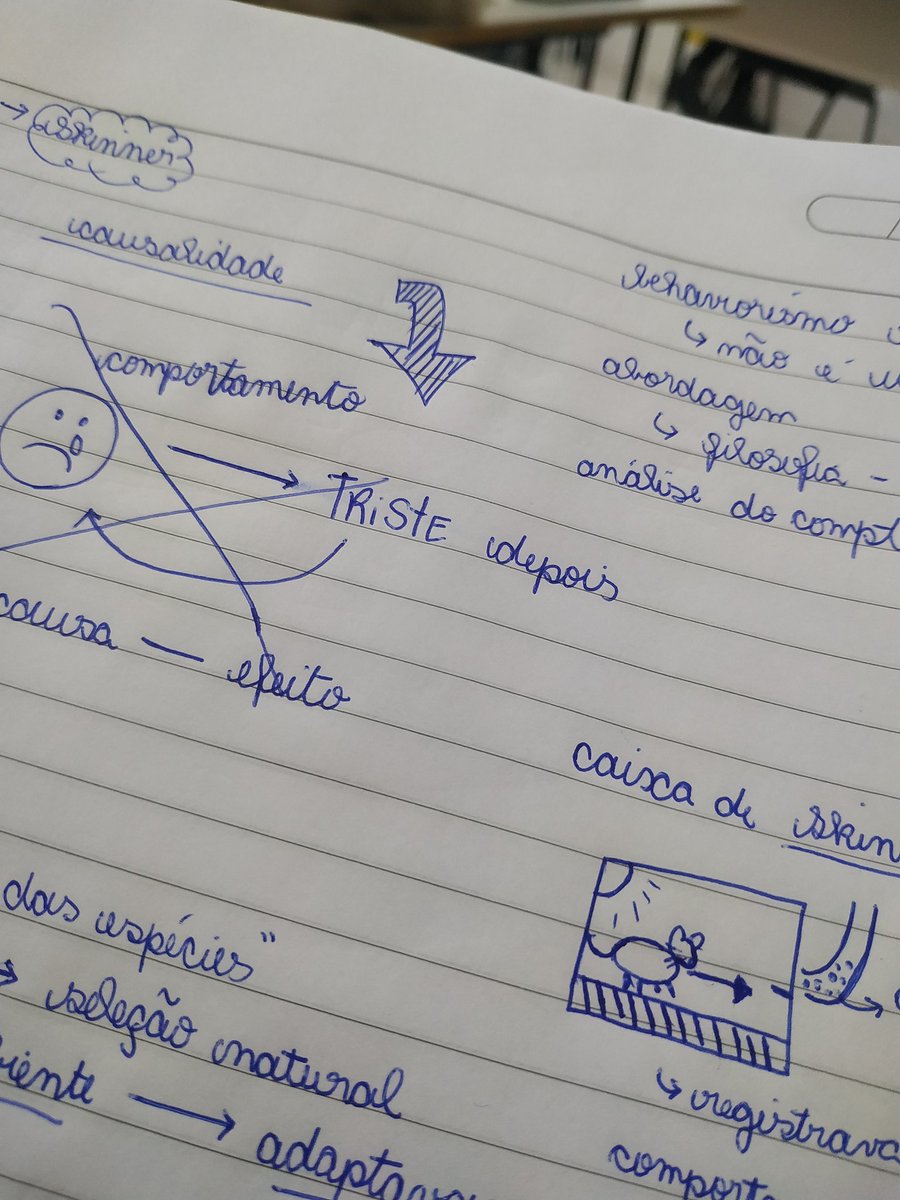 skinner
causalidade
comportamento
TRISTE depois
causa — efeito
behaviorismo
↳ não é
abordagem
↳ filosofia -
análise do compt
caixa de skin
↳ registrava
comport
das espécies"
→ seleção natural
iente → adapta